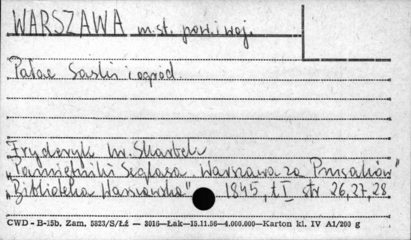 WARSZAWA m.st. pow. i woj.
Pałac Saski i ogród.
Fryderyk hr. Skarbek
"Pamiętniki Seglasa. Warszawa za Prusaków"
"Biblioteka Warszawska" 1845, t I str 26,27,28
CWD - B-15b. Zam. 5823/S/Łź — 3016—Łak—15.11.56—4.000.000—Karton kl. IV A1/200 g